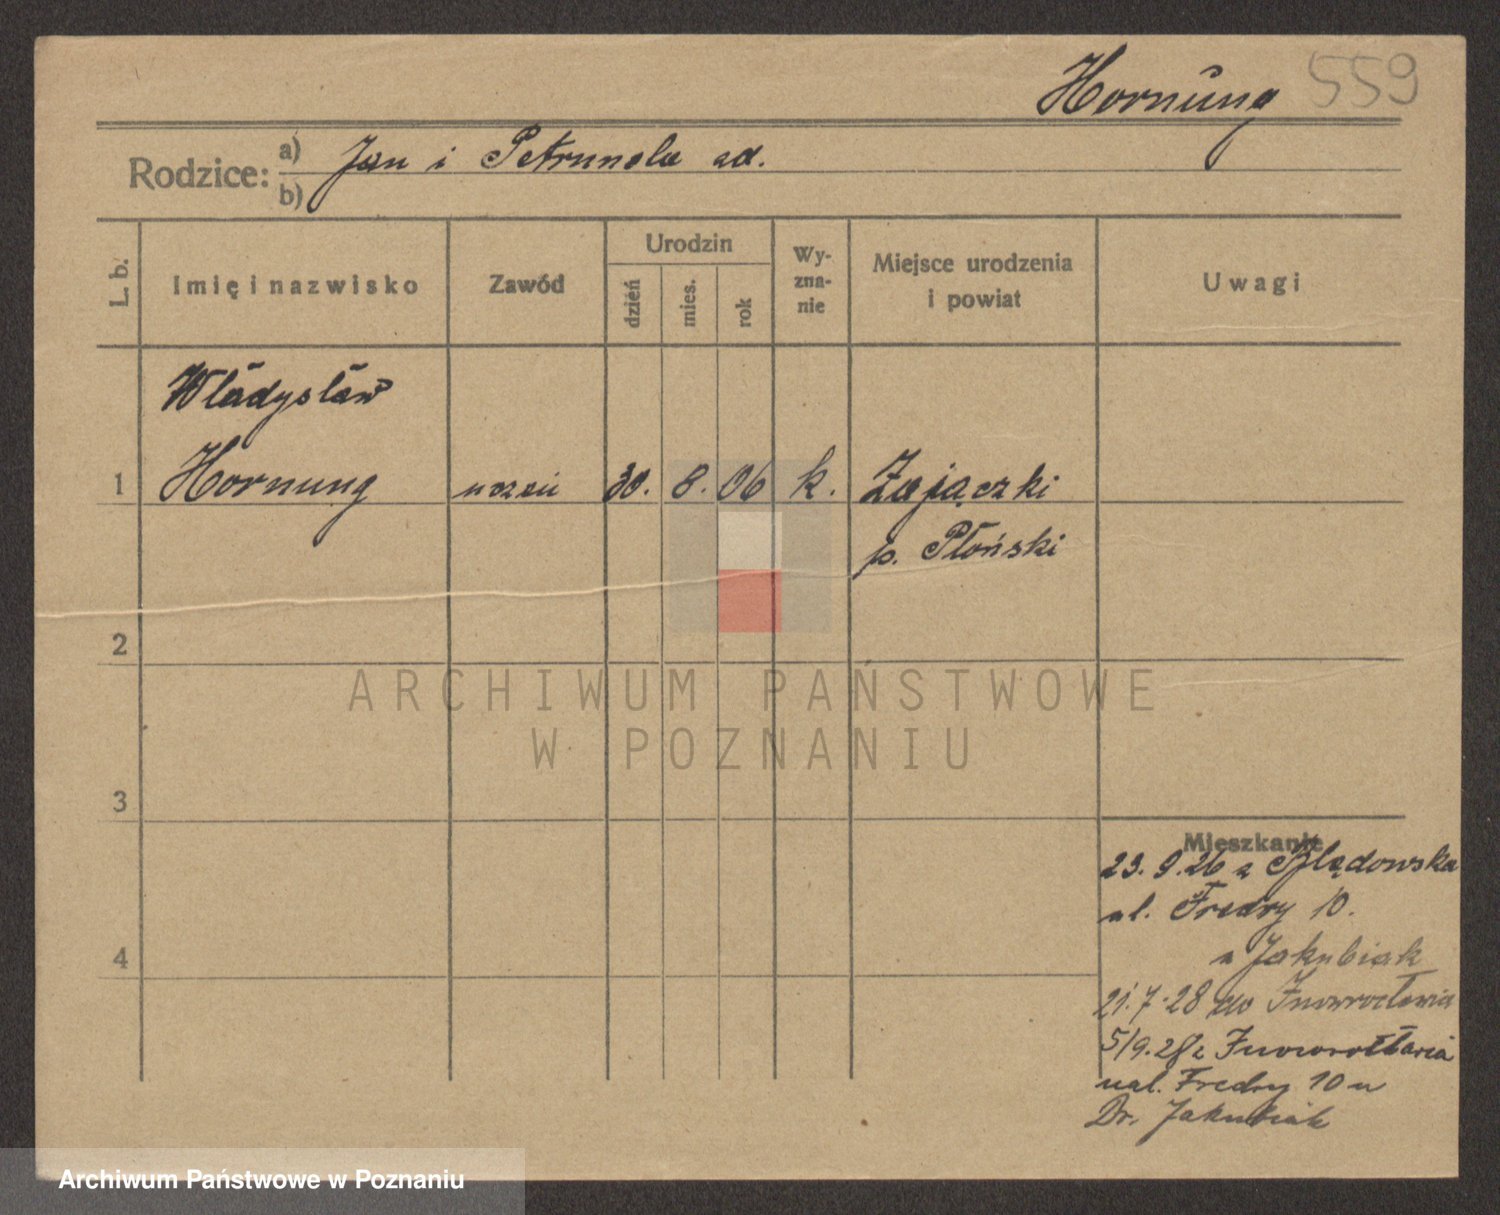 Hornung 559
Rodzice: a) Jan i Petrunela
b)
L. b. Imię i nazwisko Zawód Urodzin dzień mies. rok Wy-zna-nie Miejsce urodzenia i powiat Uwagi
Władysław
1 Hornung uczeń 30. 8. 06 k. Zajączki
p. Płoński
2
ARCHIWUM PAŃSTWOWE
W POZNANIU
3
Mieszkanie
23. 9. 26 z
ul. Fredry 10.
u Jakubiak
4
21. 7. 28 do Inowrocławia
5/9. 28 z Inowrocławia
ul. Fredry 10 u
Dr. Jakubiak
Archiwum Państwowe w Poznaniu